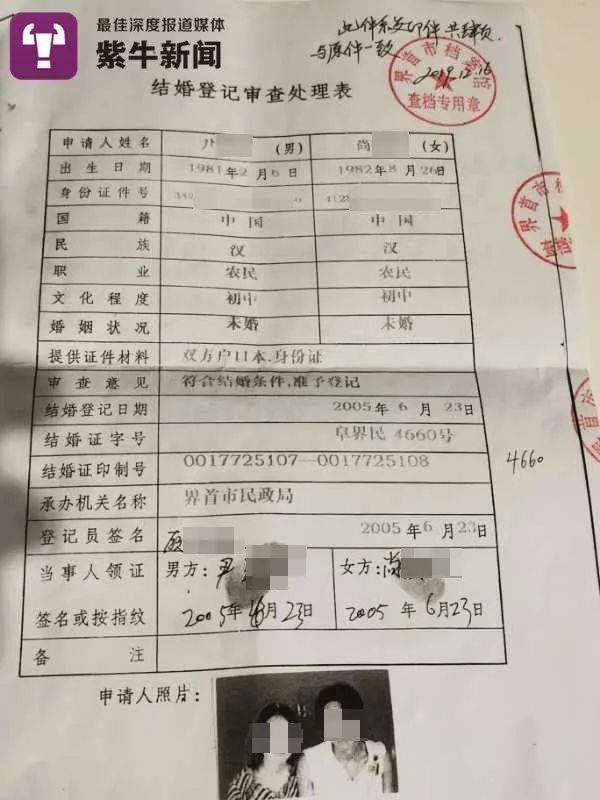 最佳深度报道媒体
紫牛新闻
此件系复印件共肆页
与原件一致
2019.12.16
界首市档案馆
查档专用章
结婚登记审查处理表
申请人姓名 尹 (男) 尚 (女)
出生日期 1981年2月6日 1982年8月26日
身份证件号 342 4128
国籍 中国 中国
民族 汉 汉
职业 农民 农民
文化程度 初中 初中
婚姻状况 未婚 未婚
提供证件材料 双方户口本.身份证
审查意见 符合结婚条件,准予登记
结婚登记日期 2005年6月23日
结婚证字号 阜界民4660号
4660
结婚证印制号 0017725107—0017725108
承办机关名称 界首市民政局
登记员签名 2005年6月23日
当事人领证 男方:尹 女方:尚
签名或按指纹 2005年6月23日 2005年6月23日
备注
申请人照片: